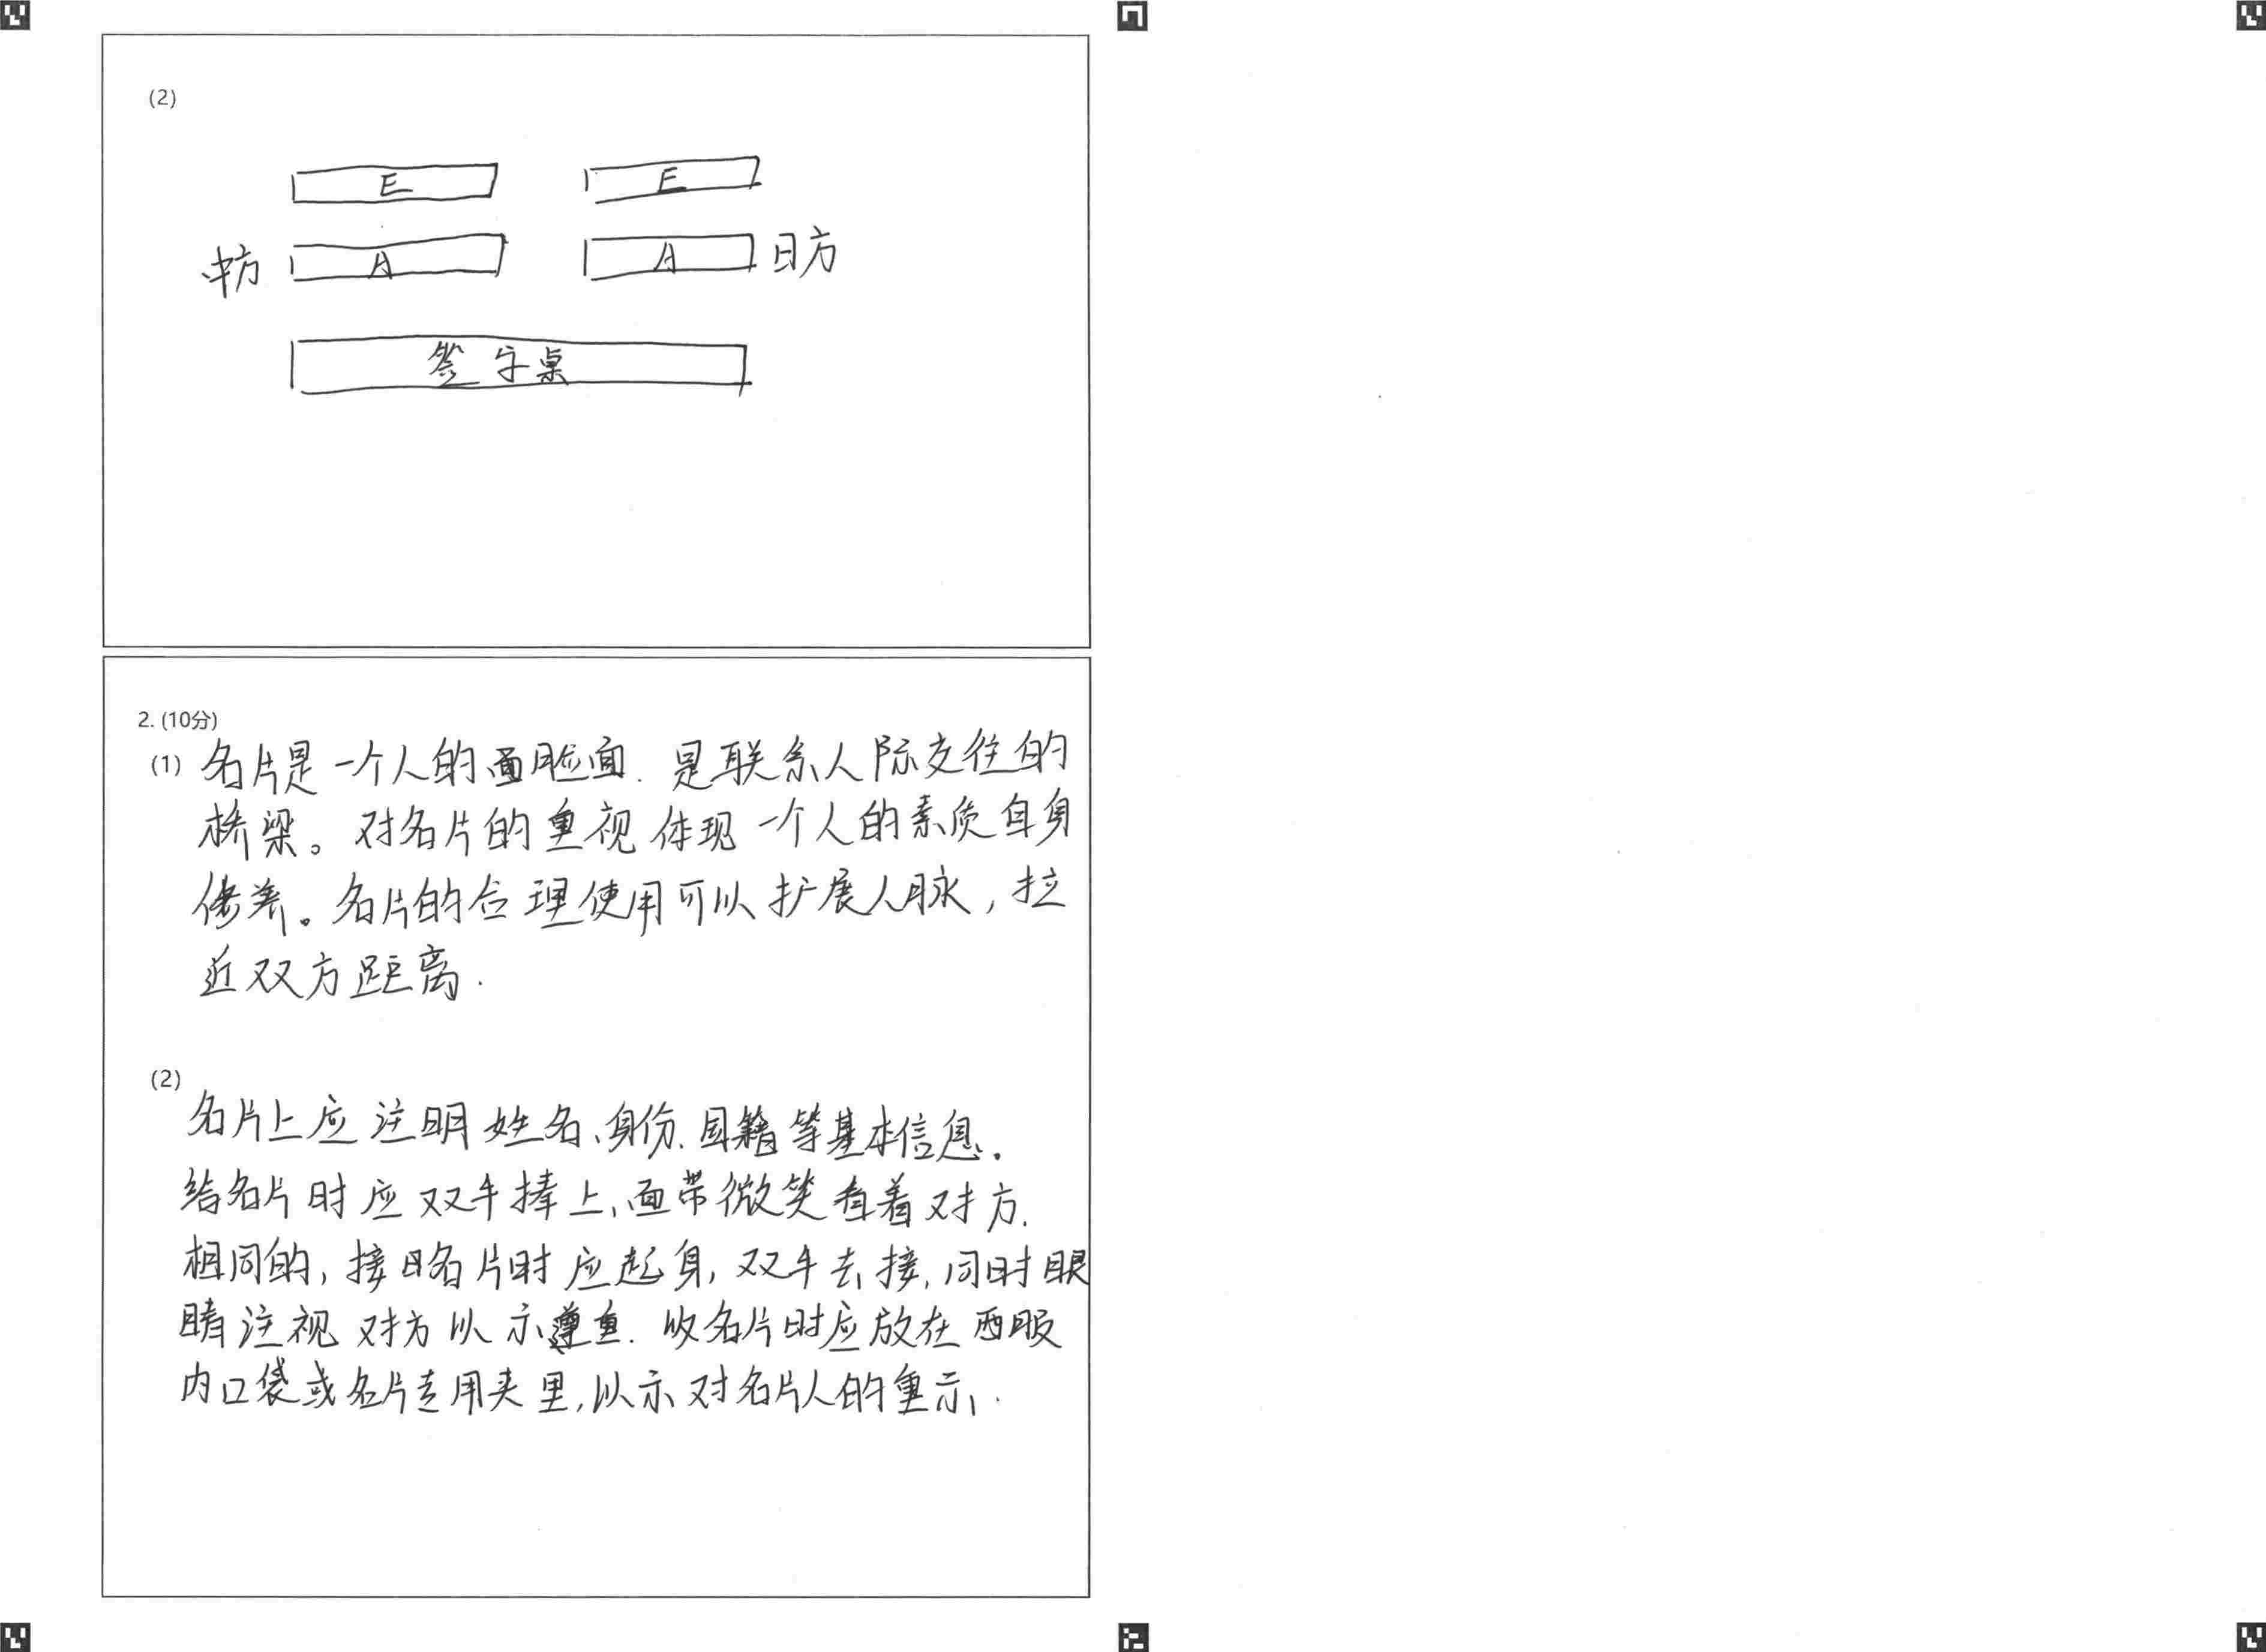 (2)
E E
中方 A A 日方
签字桌
2. (10分)
(1) 名片是一个人的脸面. 是联系人际交往的
桥梁。对名片的重视体现一个人的素质自身
修养。名片的合理使用可以扩展人脉，拉
近双方距离.
(2)
名片上应注明姓名、身份、国籍等基本信息.
给名片时应双手捧上、面带微笑看着对方.
相同的, 接名片时应起身, 双手去接, 同时眼
睛注视对方以示尊重. 收名片时应放在西服
内口袋或名片专用夹里, 以示对名片人的重示.